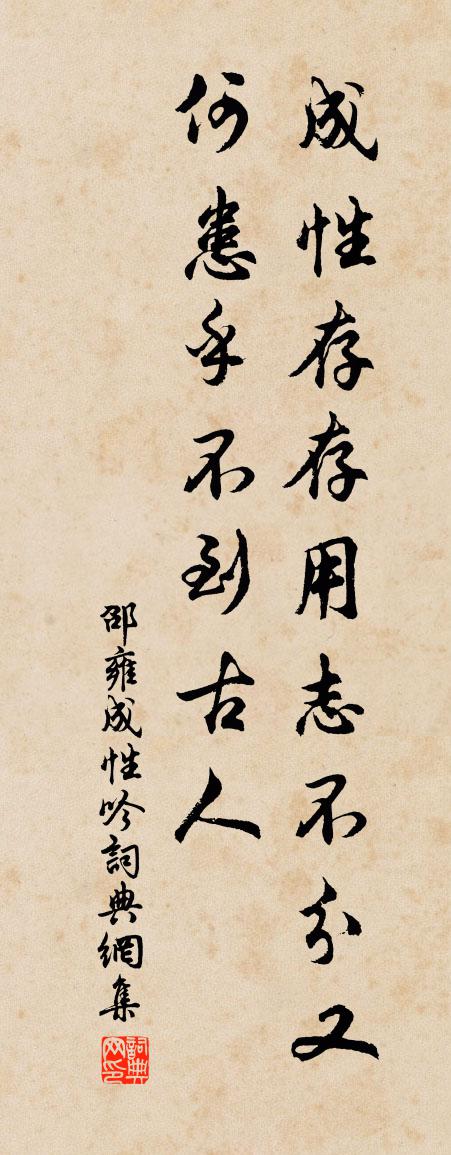 成性存存用志不分又
何患乎不到古人
邵雍成性吟詞典網集
詞典网印